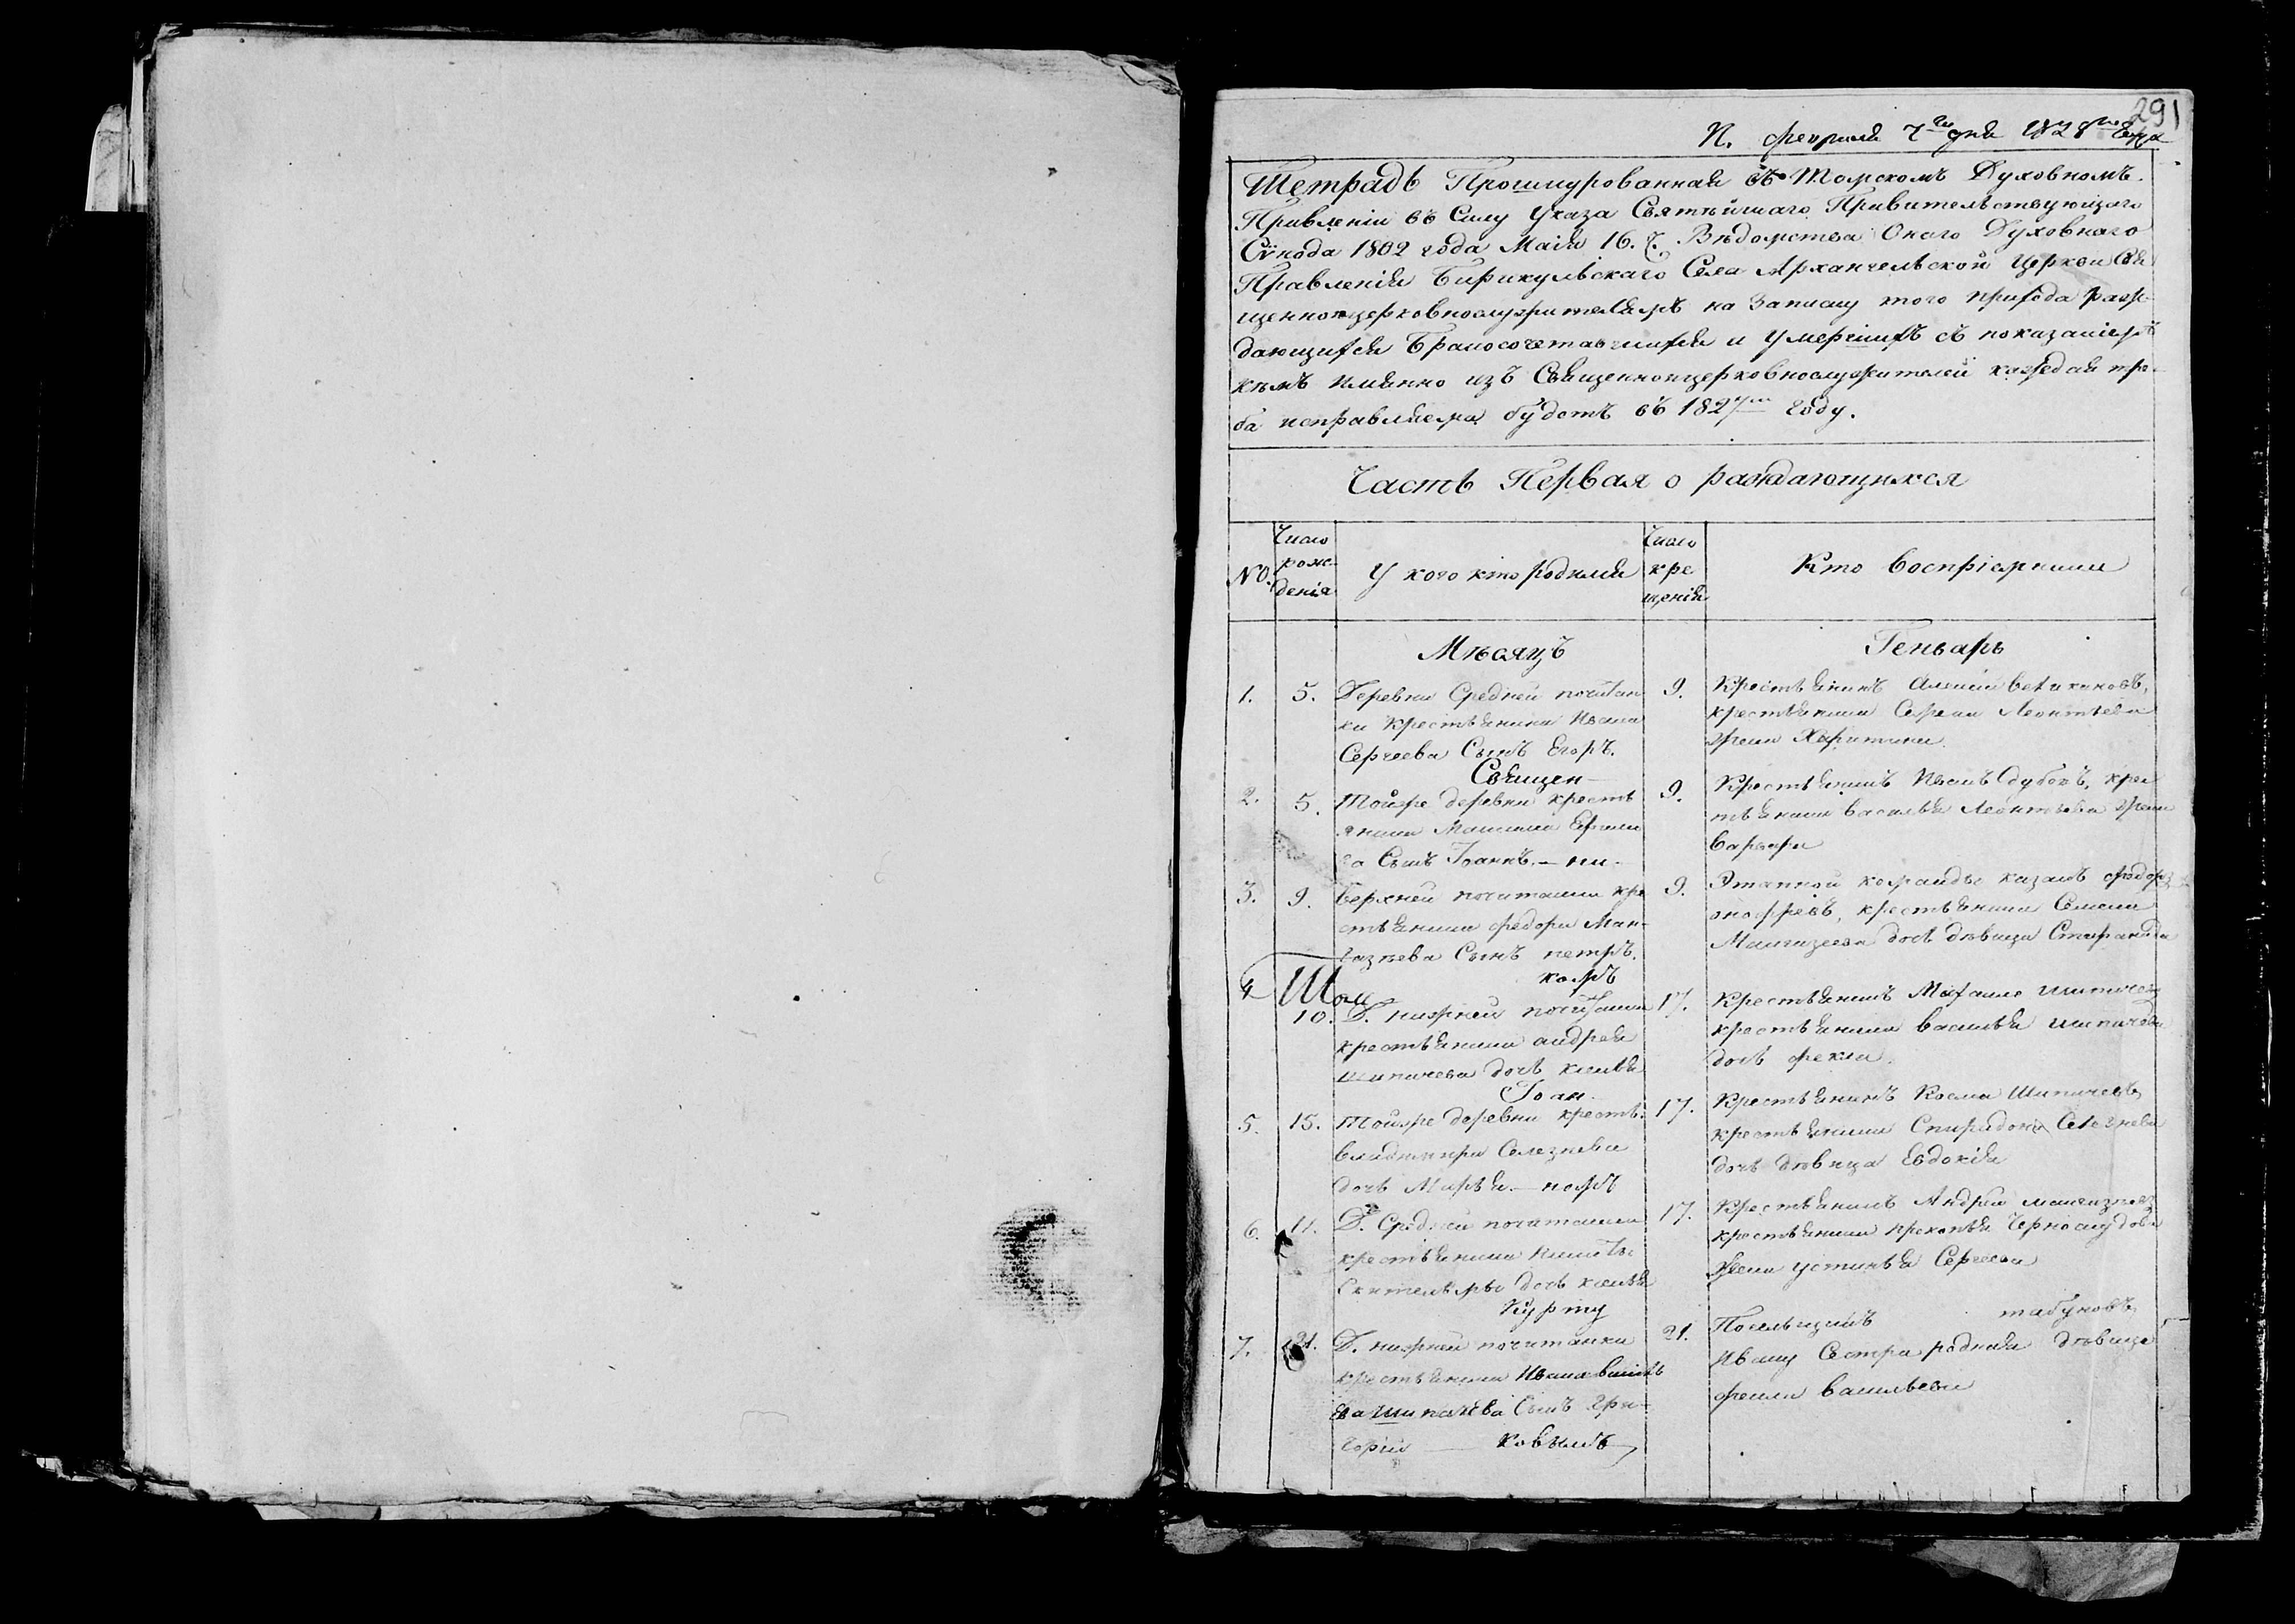 291
П. февраля 7го дня 1828го года
Тетрадь Прошнурованная въ Томскомъ Духовномъ
Правленіи въ Силу Указа Святѣйшаго Правительствующаго
Сѵнода 1802 года Маія 16. Ч. Вѣдомства Онаго Духовнаго
Правленія Бирикульскаго Села Архангельской Церкви Свя
щенноцерковнослужителямъ на Записку того прихода раж
дающихся Бракосочетавшихся и Умершихъ съ показаніемъ
кѣмъ имянно изъ Священноцерковнослужителей каждая тре
ба исправляема будетъ въ 1827м Году.
Часть Первая о раждающихся
№
Число рож- денія
У кого кто родился
Число кре щенія
Кто Воспріемники
Мѣсяцъ
Геньварь
1.
5.
Деревни Средней почитан
ки крестьянина Ивана
Сергеева Сынъ Егоръ.
9.
Крестьянинъ Алексѣй ветихановъ,
крестьянина Сергея Леонтьева
жена Харитина
Священ-
2.
5.
Тойже деревни кресть
янина Максима
ва Сынъ Іоаннъ. — ни-
9.
Крестьянинъ Иванъ Дубовъ, крес
тьянина Василья Леонтьева жена
Варвара
3.
9.
Верхней почитанки кре
стьянина Федора Ман-
газѣева Сынъ петръ.
9.
Этапной команды казакъ Федоръ
анофреевъ, крестьянина Семена
Мангазеева дочь дѣвица Стефанида
комъ
4
Шом
10.
Д. нижней почитанки
крестьянина андрея
шипичева дочь ксенья
17.
Крестьянинъ Михаило шипичев
крестьянина Василья шипичева
дочь Фекла.
Іоан-
5.
15.
Тойже деревни кресть:
владимира Селезнева
дочь Марья. — номъ
17.
Крестьянинъ Косма Шипичевъ,
крестьянина Спиридона Селезнева
дочь дѣвица Евдокія
6.
11.
Д. Средней почитанки
крестьянина Никиты
дочь ксенья
17.
Крестьянинъ Андрей мангазеев
крестьянина прокопья Черноскудова
жена устинья Сергеева
Курту
7.
21.
Д. нижней почитанки
крестьянина Ивана василь
ева шипачева Сынъ Гри-
горій — ковымъ
21.
Посельщикъ табуновъ,
Ивану Сестра родная дѣвица
фекла васильева